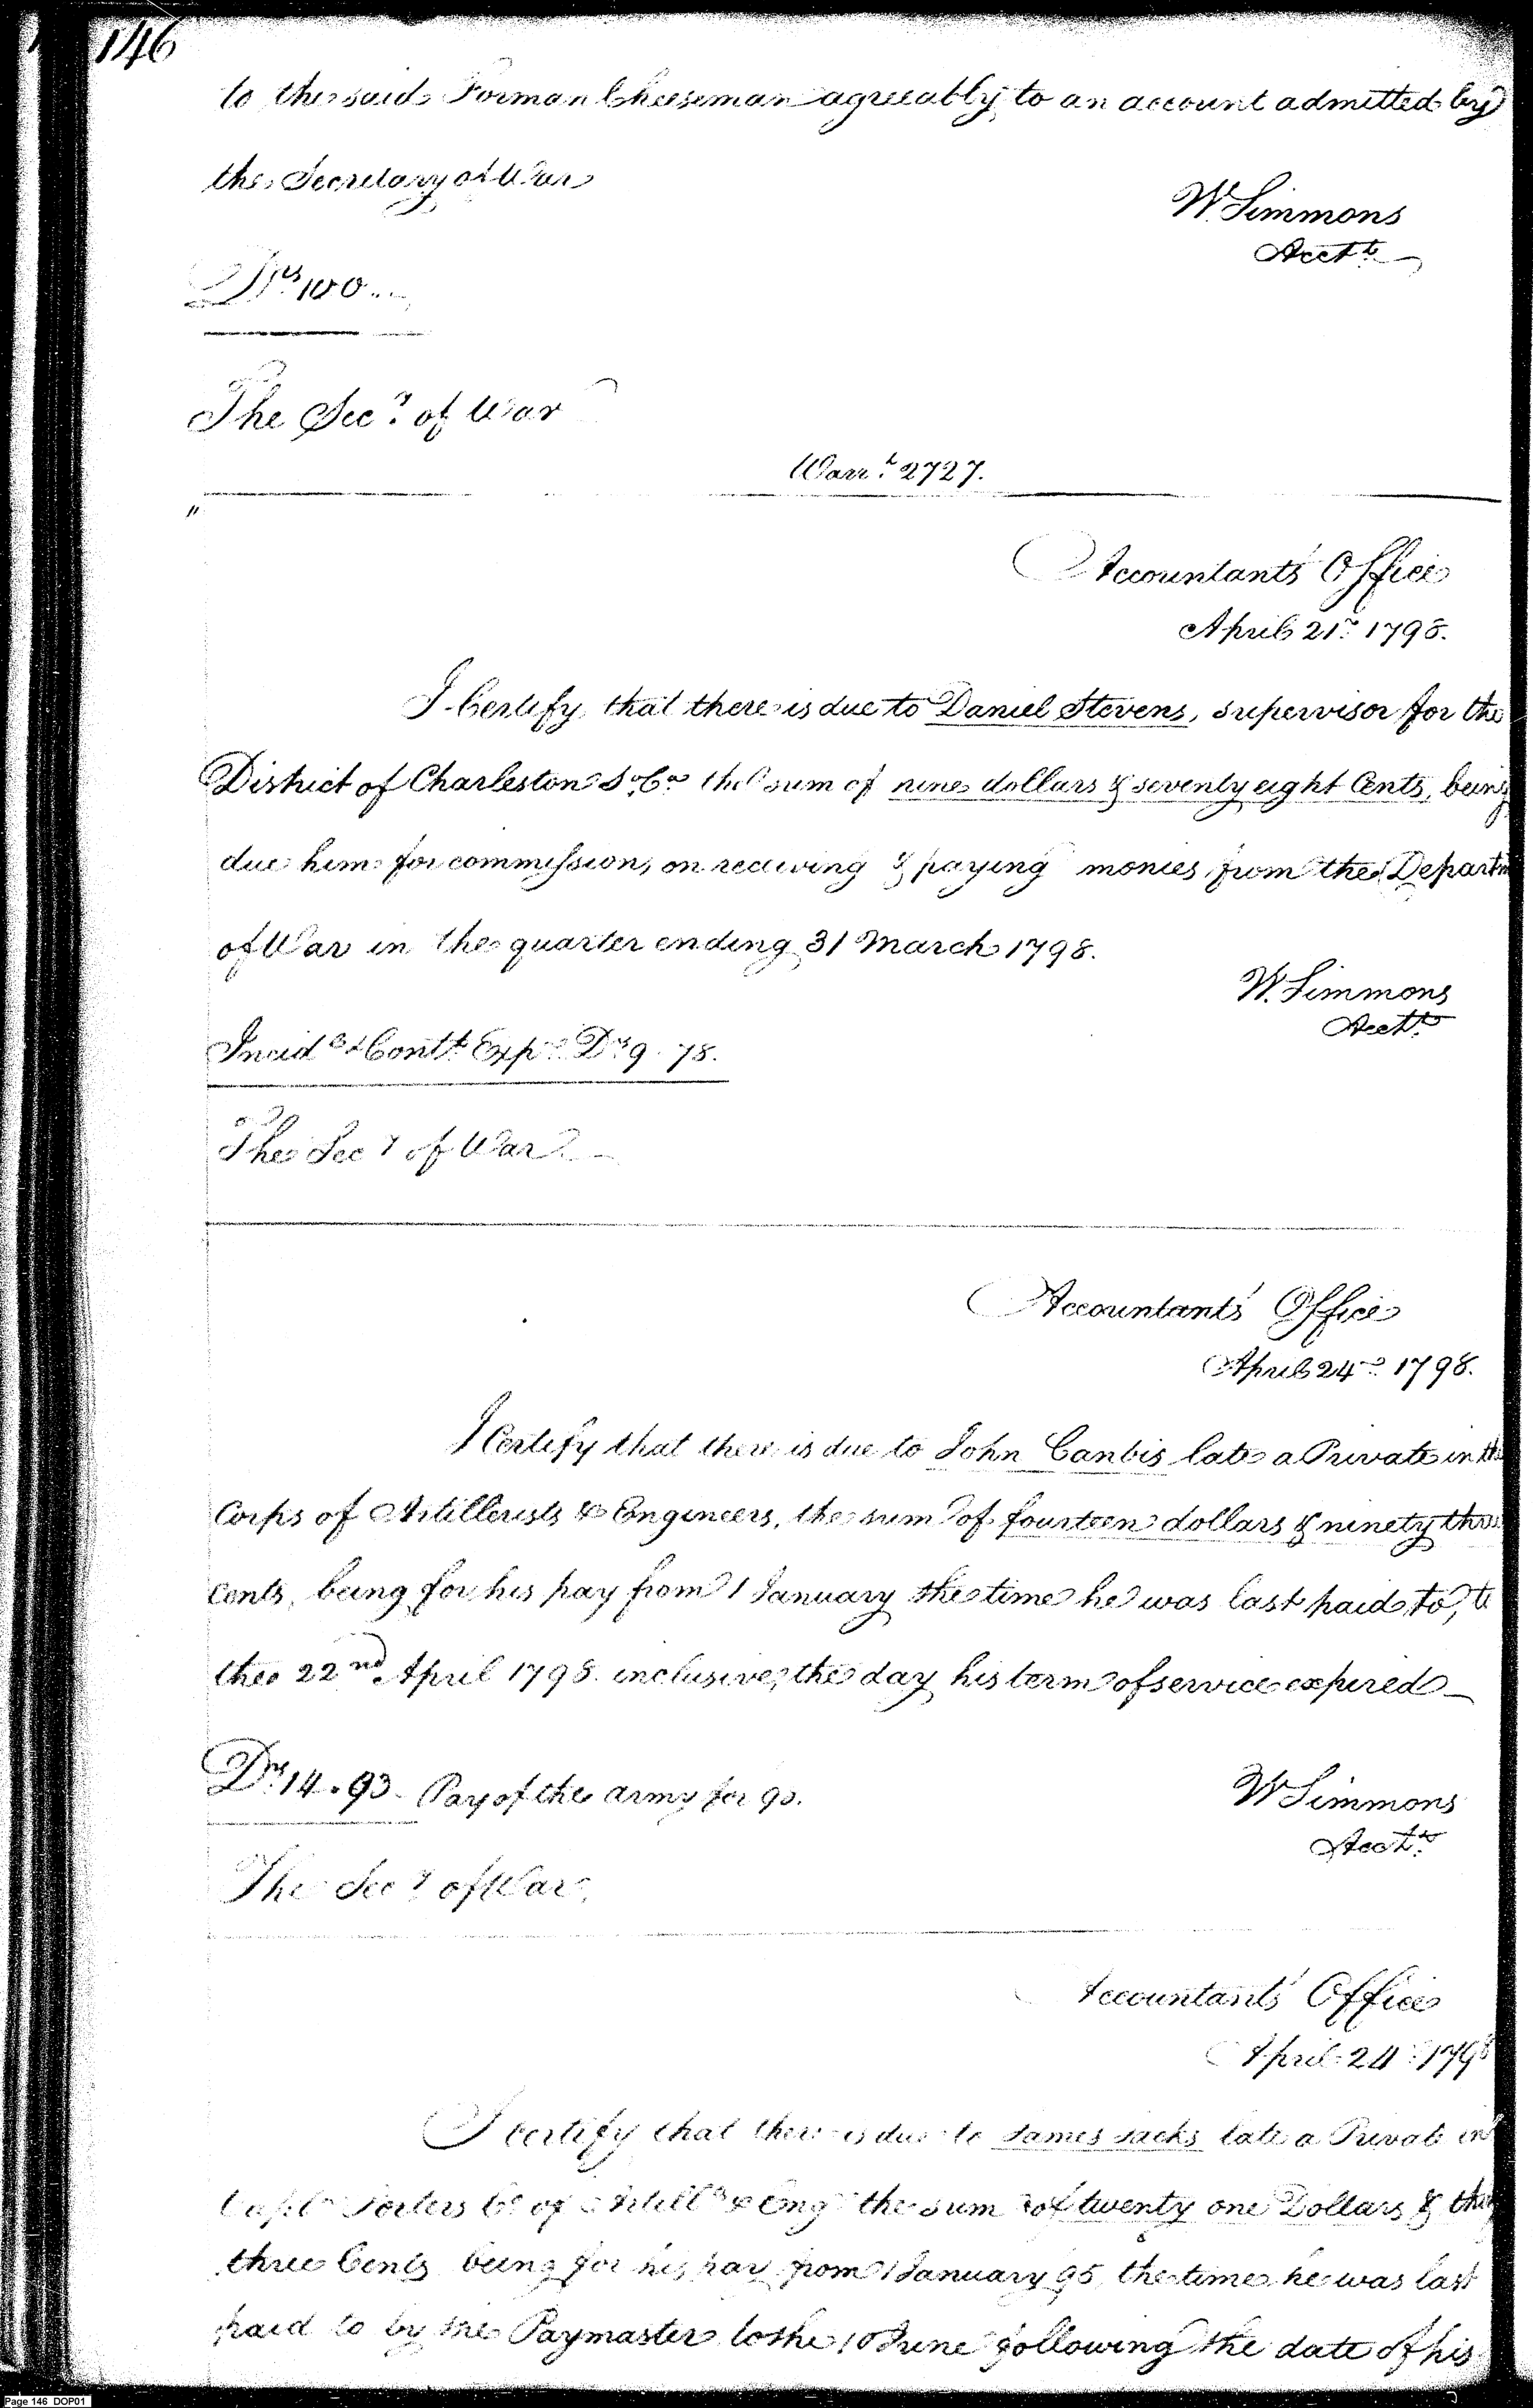 146
to the said Forman Cheeseman agreeably to an account admitted by
the Secretary of War
W. Simmons
Acctt.
Drs 100..
The Secy. of War
Warrt. 2727.
"
Accountants' Office
April 21st. 1798.
I Certify, that there is due to Daniel Stevens, supervisor for the
District of Charleston So. Ca. the sum of nine dollars & seventy eight Cents, being
due him for commission, on receiving & paying monies from the Departm
of War in the quarter ending 31 March 1798.
W. Simmons
Acctt.
Incid & Contt. Exps. Drs 9. 78.
The Secy of War
Accountants' Office
April 24 1798.
I Certify that there is due to John Canbis late a Private in the
Corps of Artillerists & Engineers, the sum of fourteen dollars & ninety three
cents, being for his pay from 1 January the time he was last paid to, to
the 22nd. April 1798. inclusive, the day his term of service expired
Drs. 14.93 Pay of the army for 98.
W Simmons
Acctt.
The Secy of War,
Accountants' Office
April 24 1798
I certify that there is due to James Jacks late a Private in
Capt. Porters Co of Artills & Eng the sum of twenty one Dollars &
three Cents being for his pay from 1 January 95 the time he was last
paid to by the Paymaster to the 10 June following the date of his
Page 146 DOP01